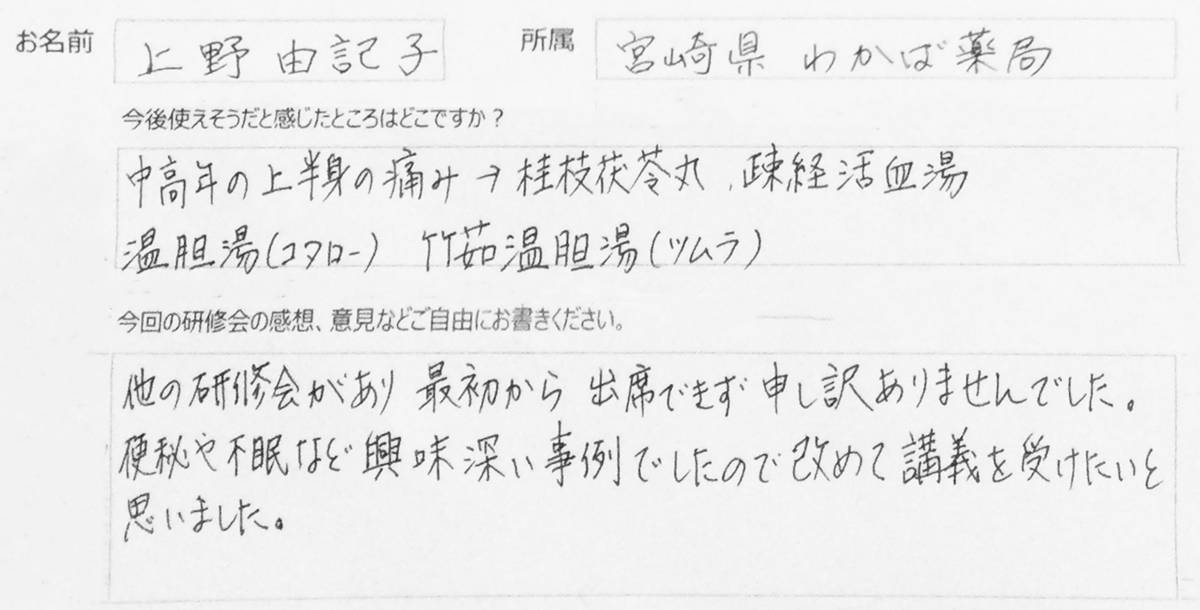 お名前 上野由記子 所属 宮崎県 わかば薬局
今後使えそうだと感じたところはどこですか？
中高年の上半身の痛み→桂枝茯苓丸、疎経活血湯
温胆湯(コタロー) 竹茹温胆湯(ツムラ)
今回の研修会の感想、意見などご自由にお書きください。
他の研修会があり 最初から 出席できず 申し訳ありませんでした。
便秘や不眠など興味深い事例でしたので改めて講義を受けたいと
思いました。